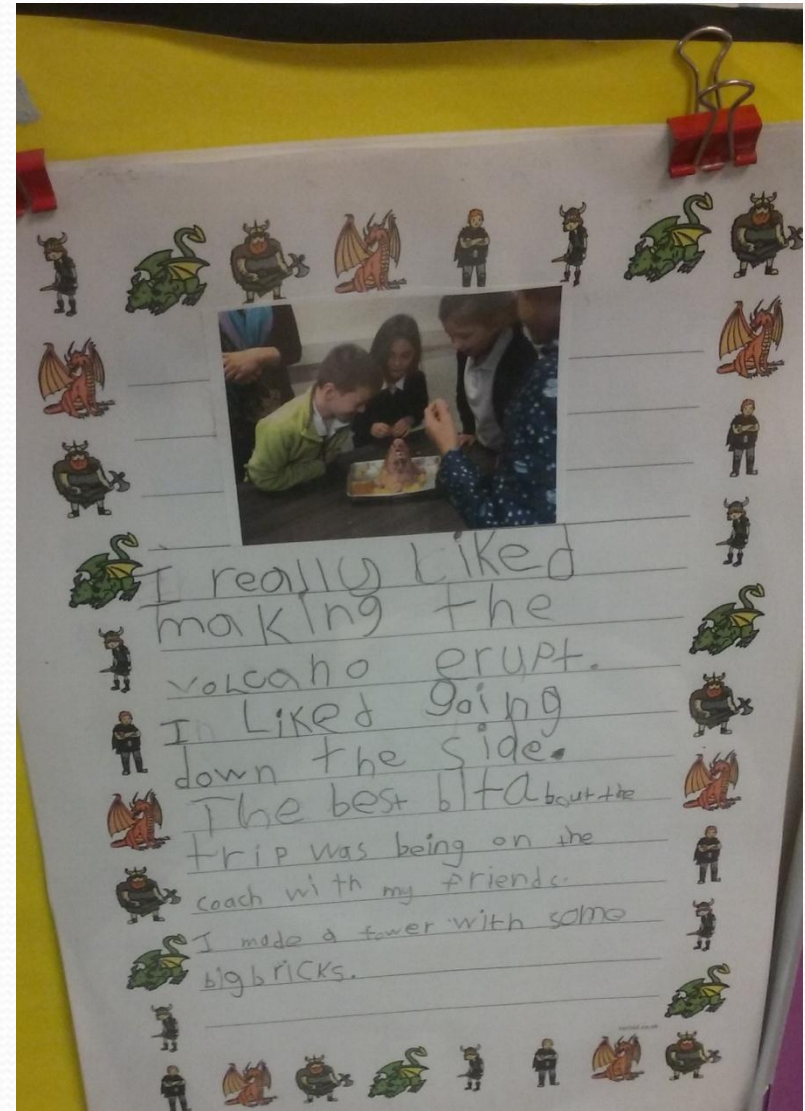 I really Liked
making the
voLcano erupt.
In Liked going
down the side.
The best bit about the
trip was being on the
coach with my friends.
I made a tower with some
big bricks.